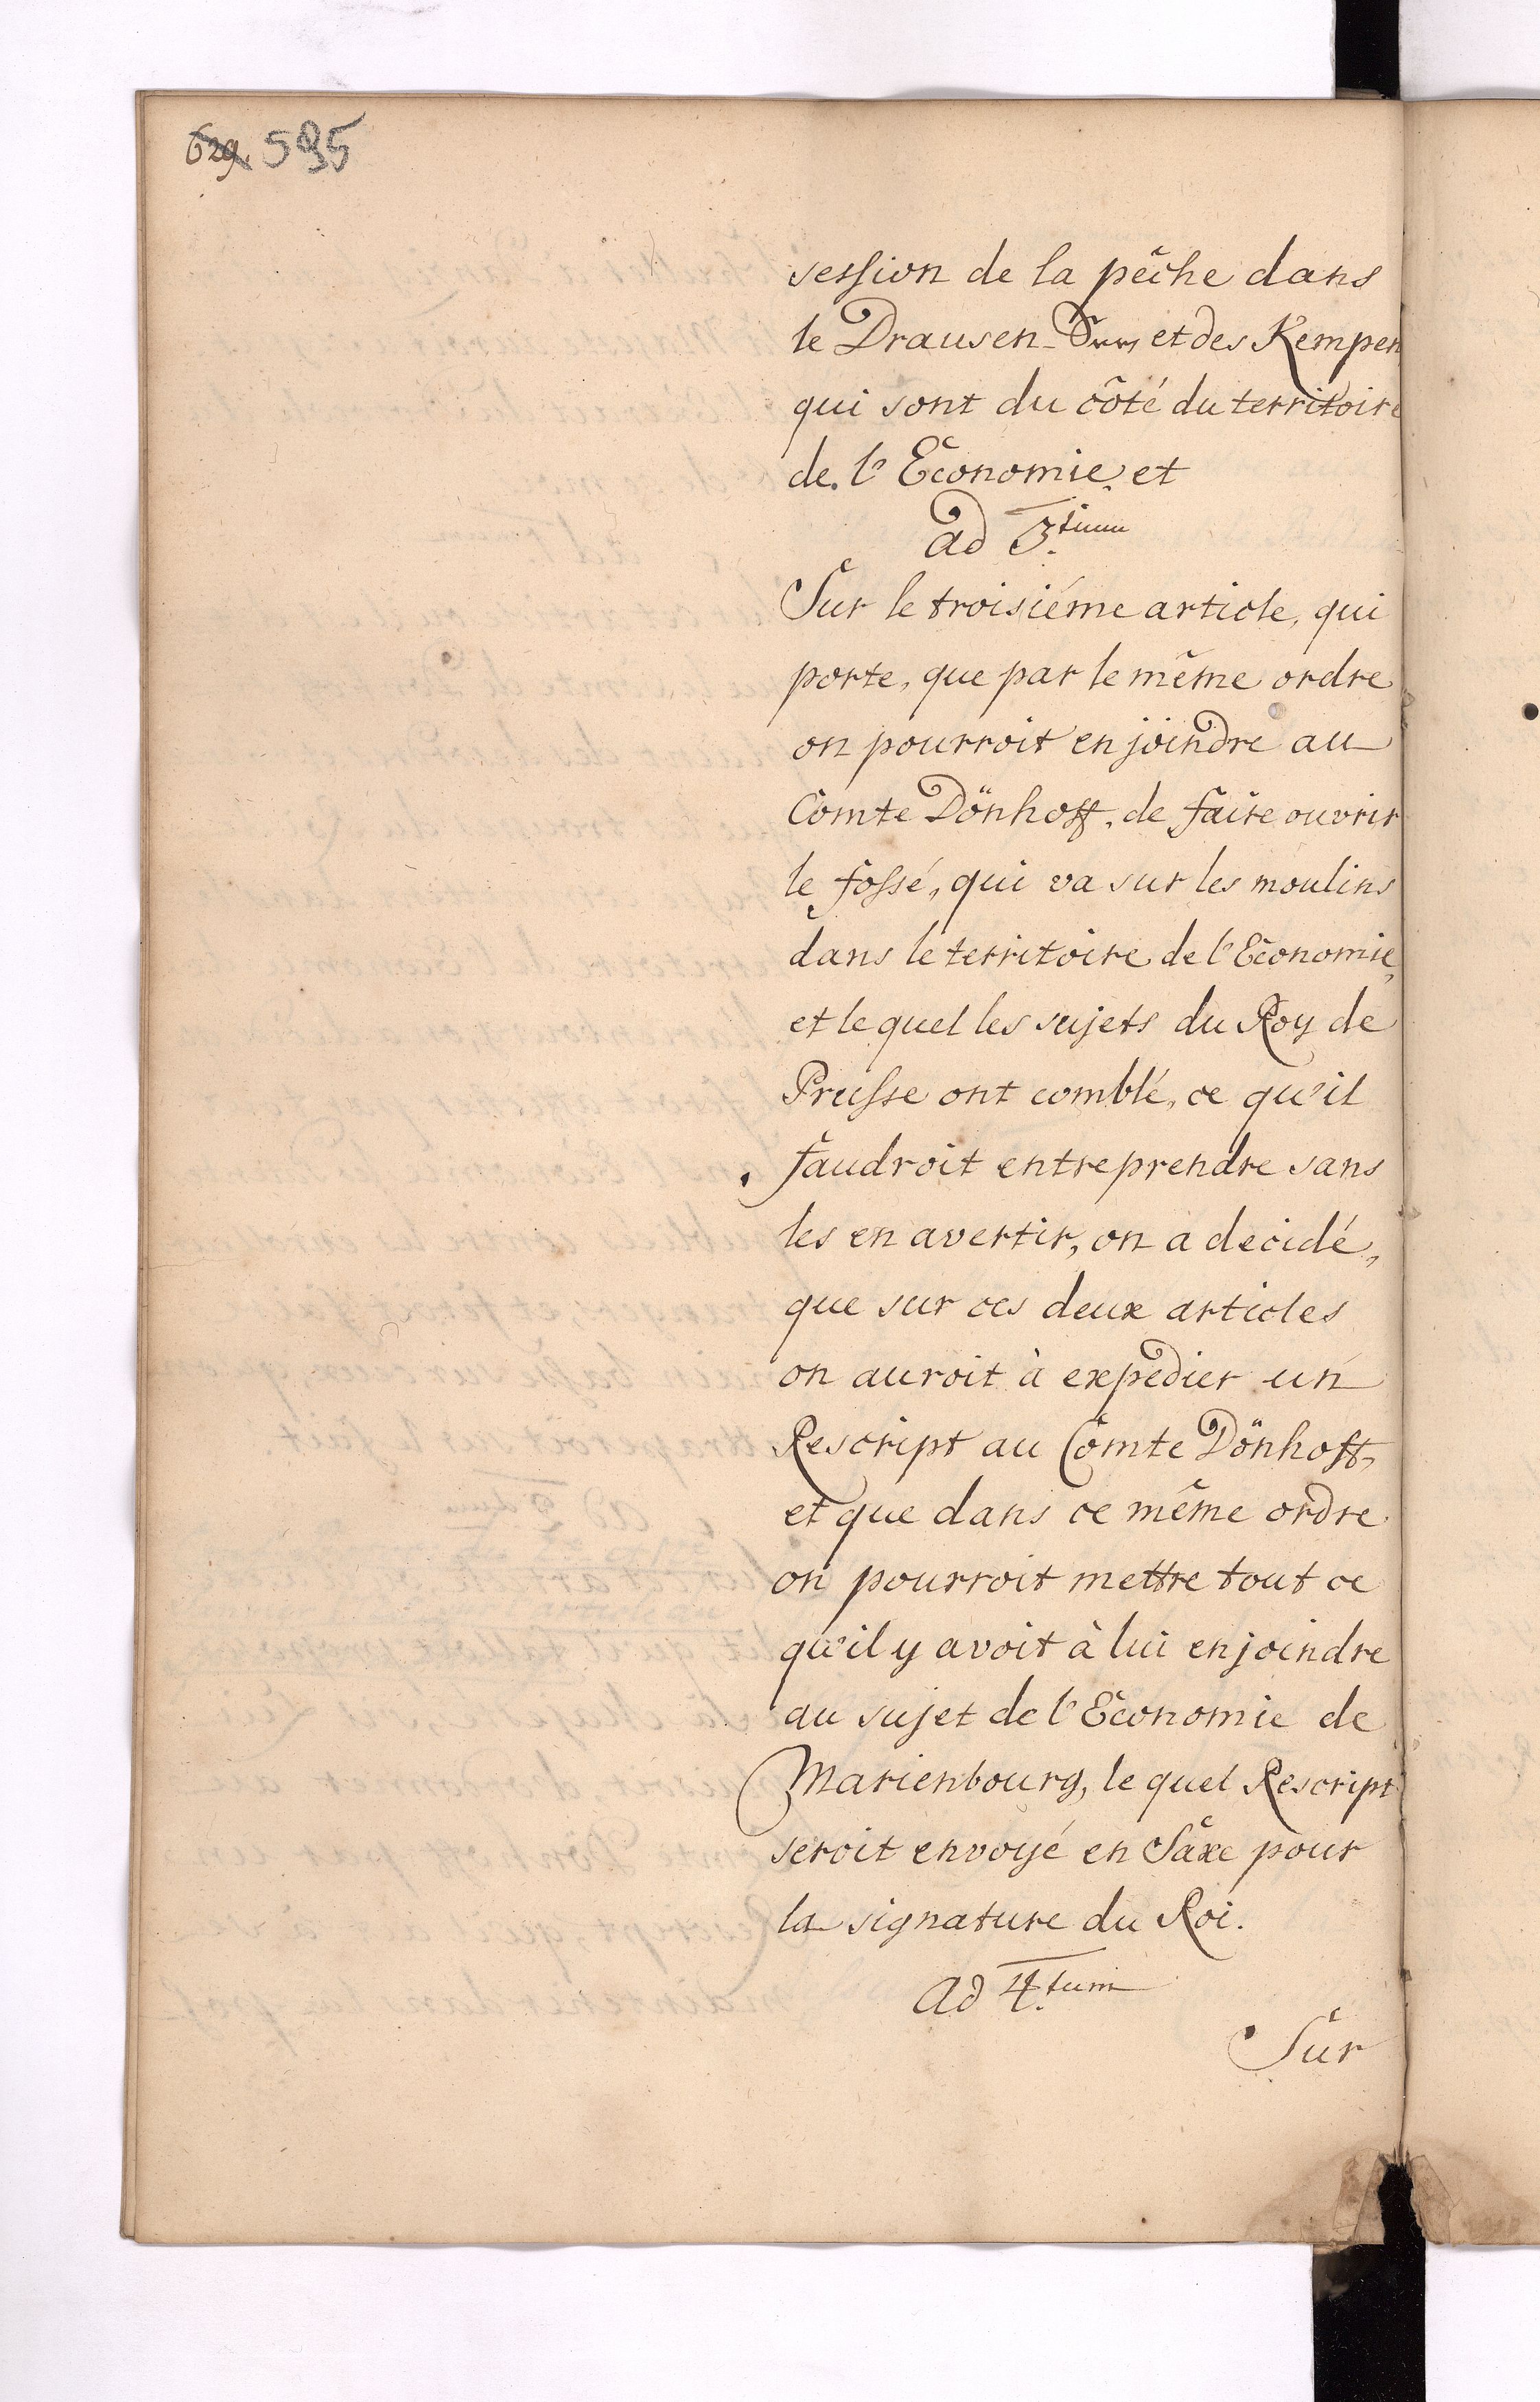 629. 595
session de la pêche dans
le Drausen-See et des Kempen
qui sont du côté du territoire
de l'Economie, et
ad 3.tium
Sur le troisiéme article, qui
porte, que par le même ordre
on pourroit enjoindre au
Comte Dönhoff, de faire ouvrir
le fossé, qui va sur les moulins
dans le territoire de l'Economie,
et le quel les sujets du Roy de
Prusse ont comblé, ce qu'il
faudroit entreprendre sans
les en avertir, on a decidé,
que sur ces deux articles
on auroit à expedier un
Rescript au Comte Dönhoff,
et que dans ce même ordre
on pourroit mettre tout ce
qu'il y avoit à lui enjoindre
au sujet de l'Economie de
Marienbourg, le quel Rescript
seroit envoyé en Saxe pour
la signature du Roi.
ad 4.tum
Sur